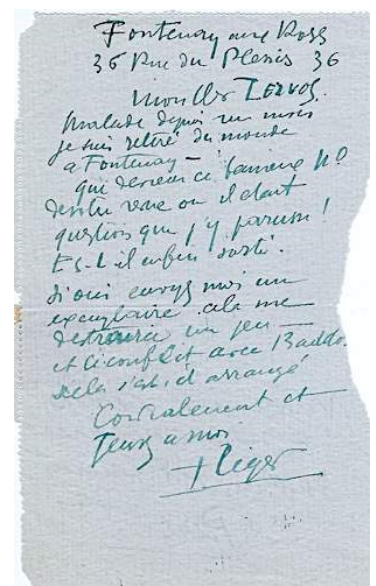 Fontenay aux Roses
36 Rue du Plessis 36
Mon cher Zervos.
Malade depuis un mois
je suis retiré du monde
a Fontenay —
que devient ce fameux No
de votre revue ou il etait
question que j'y parusse !
Est-il enfin sorti.
Si oui envoyez moi un
exemplaire cela me
distraira un peu —
et le conflit avec
cela s'est il arrangé
Cordialement et
a moi
F Leger